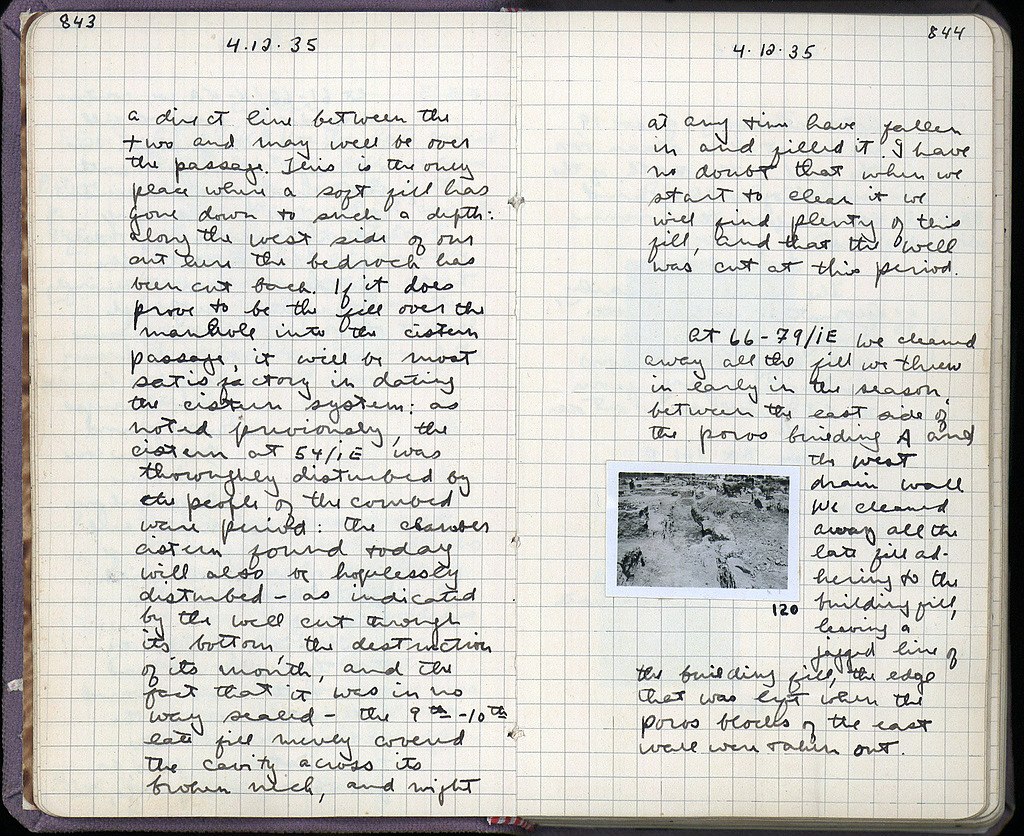 843
4.12.35
a direct line between the
two and may well be over
the passage. This is the only
place where a soft fill has
gone down to such a depth:
along the west side of our
cut here the bedrock has
been cut back. If it does
prove to be the fill over the
manhole into the cistern
passage, it will be most
satisfactory in dating
the cistern system: as
noted previously, the
cistern at 54/ΙΕ was
thoroughly disturbed by
the people of the combed
ware period: the chamber
cistern found today
will also be hopelessly
disturbed - as indicated
by the well cut through
its bottom, the destruction
of its mouth, and the
fact that it was in no
way sealed - the 9th-10th
late fill merely covered
the cavity across its
broken neck, and might
844
4.12.35
at any time have fallen
in and filled it. I have
no doubt that when we
start to clear it we
will find plenty of this
fill, and that the well
was cut at this period.
At 66-79/ΙΕ we cleaned
away all the fill we threw
in early in the season,
between the east side of
the poros building A and
the west
drain wall
We cleaned
away all the
late fill ad-
hering to the
building fill,
leaving a
jagged line of
the building fill, the edge
that was left when the
poros blocks of the east
wall were taken out.
120